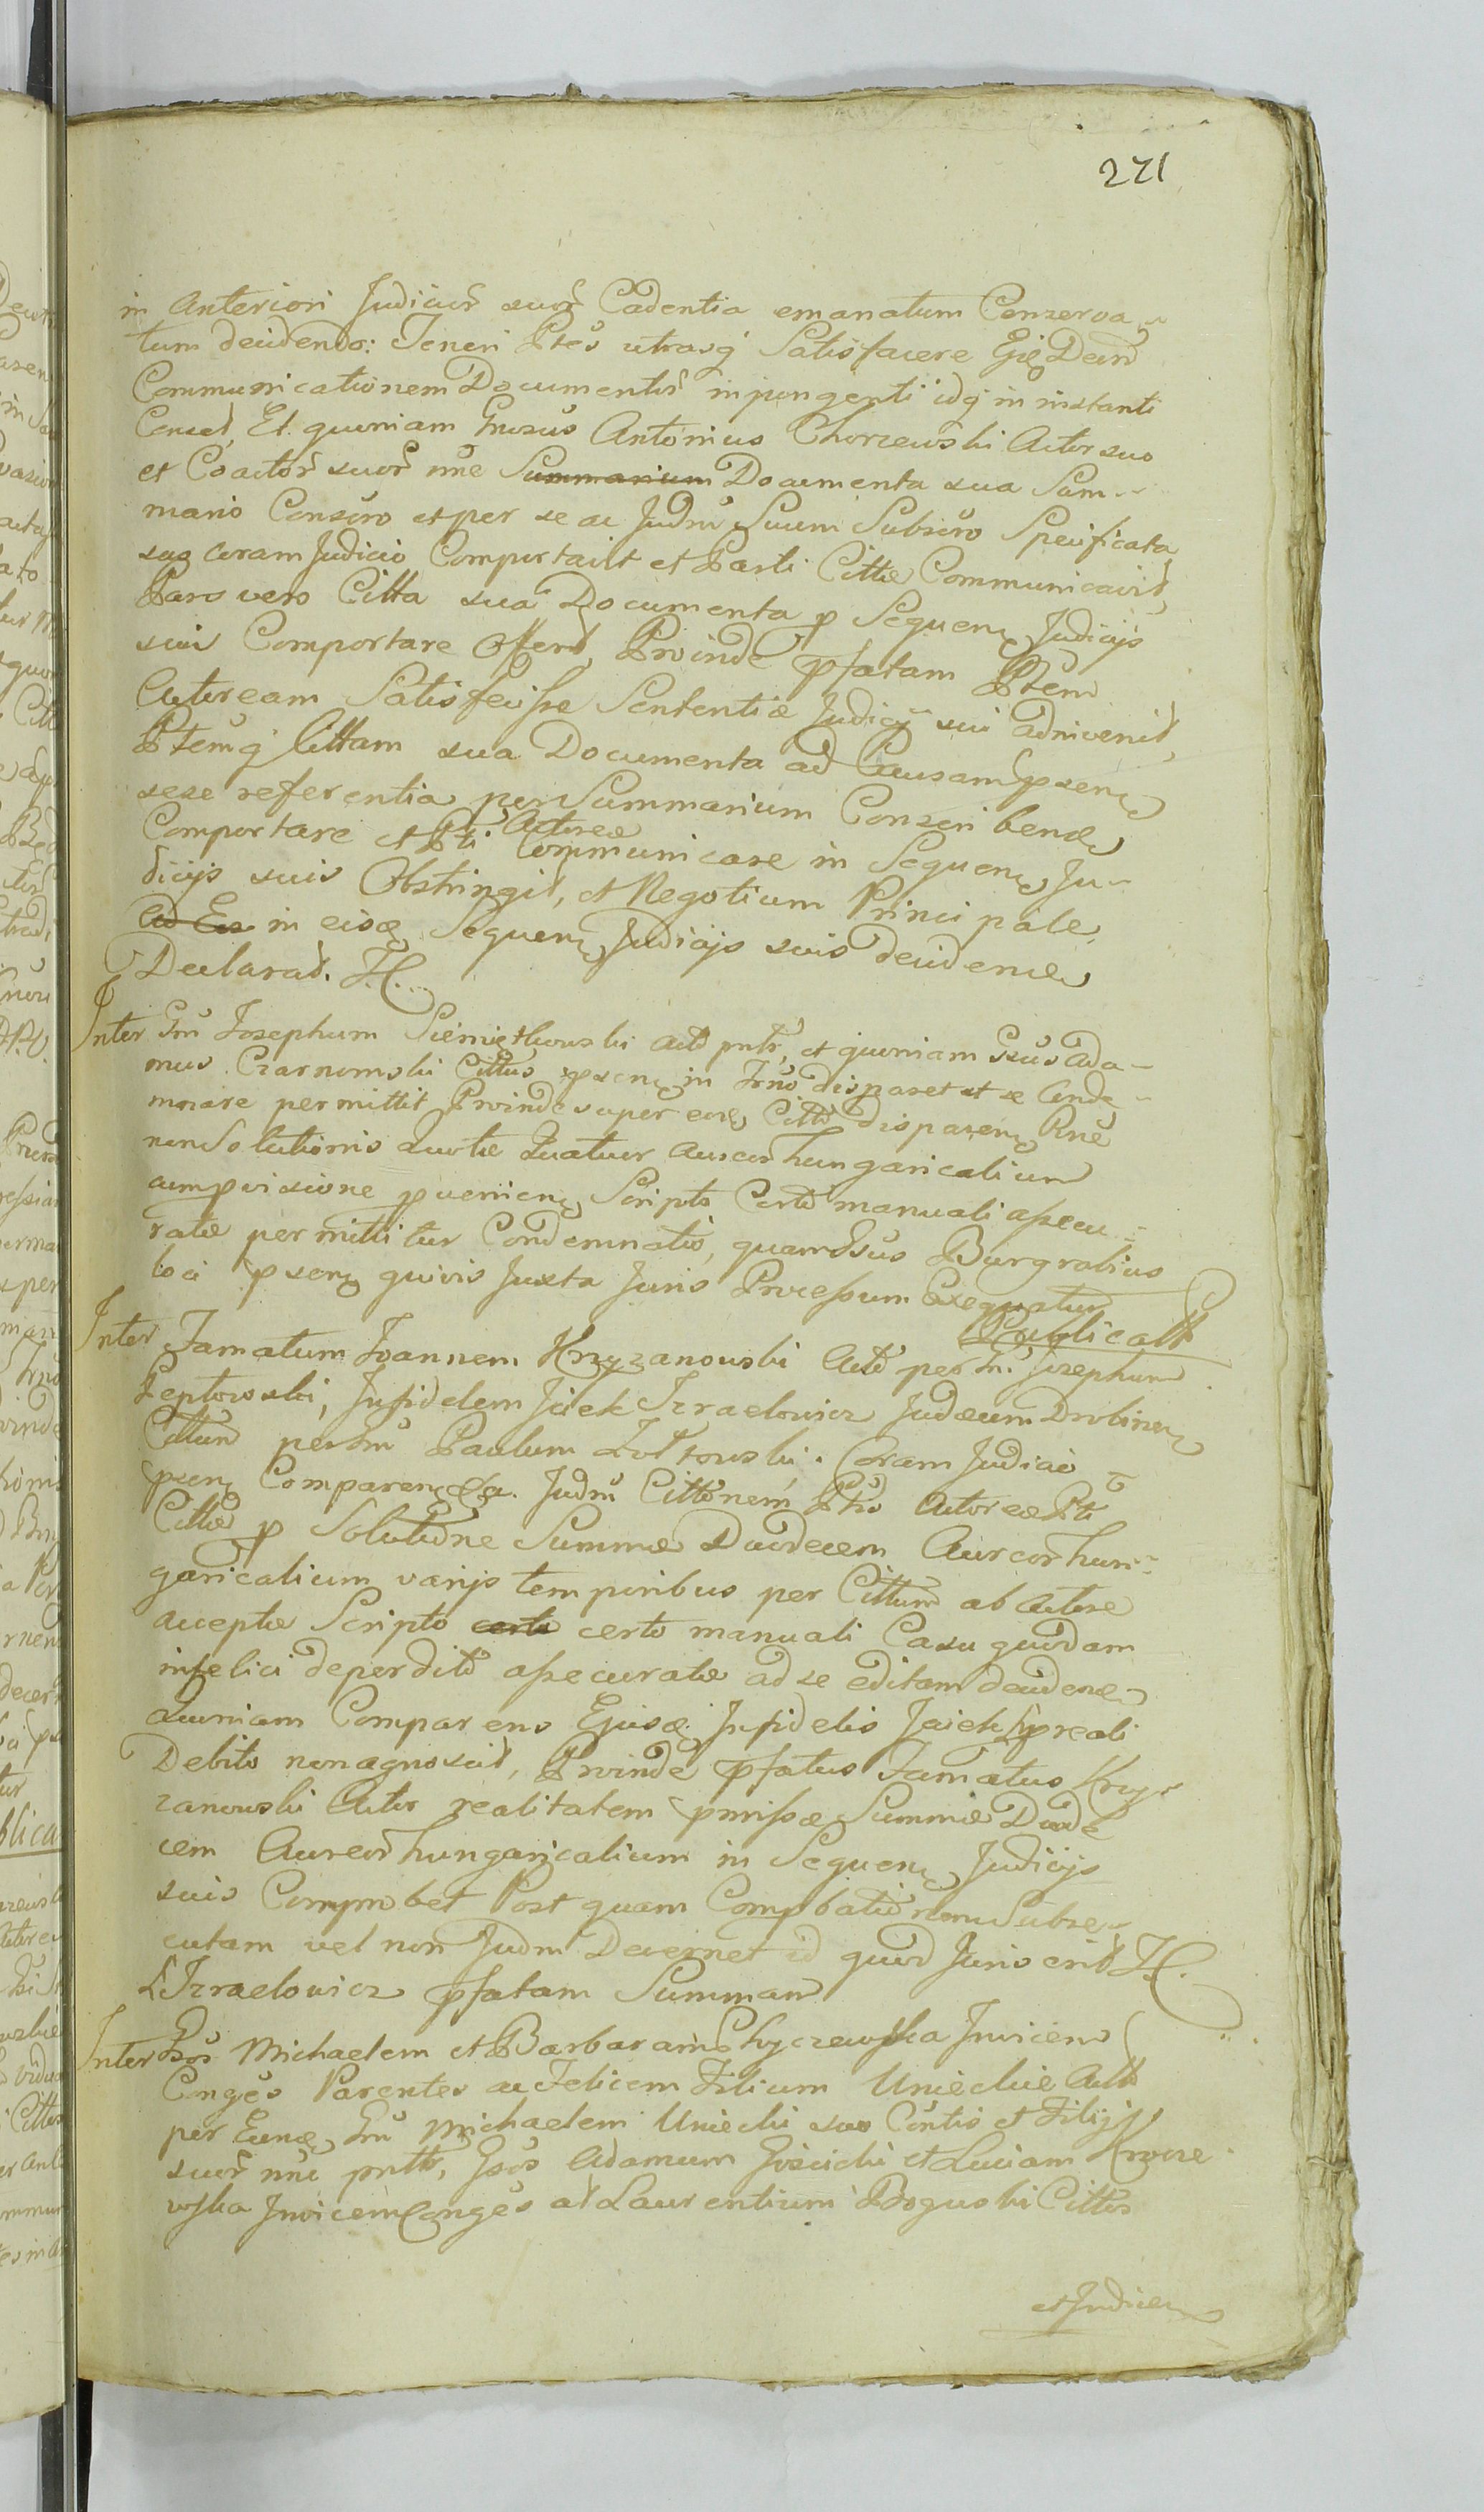 271
in Anteriori Judicior suor Cadentia emanatum Conserva-
tum decidendo: Teneri Ptes utrasq Satisfacere Ejq Decrō
Communicationem Documentor injungenti idq in instanti
Censet, Et quoniam Gnosus Antonius Chorzewski Actor suo
et Coactor suor nne Summarium Documenta sua Sum-
mario Conscro et per se ac Judm Suum Subscro Specificata
coram Judicio Comportavit et Parti Cittæ Communicavit,
Pars vero Citta sua Documenta p Sequen Judicijs
suis Comportare Offert, Proinde pfatam Ptem
Actoream Satisfecisse Sententiæ Judicij sui adnivenit,
Ptemq Cittam sua Documenta ad Causam psen
sese referentia per Summarium Conscribenæ
Comportare et Pti Actoreæ Communicare in Sequen Ju-
dicijs suis Obstringit, et Negotium Principale,
ad Ea in eisæ Sequen Judicijs suis decidenæ
Declarat. J.C.
Inter Gnm Josephum Siemiętkowski Act pntr, et quoniam Gsus Ada-
mus Czarnomski Cittus psen in Trno disparet et se Conde-
mnare permittit Proinde super eoæ Citto disparen Rne
non Solutionis Quotæ Quatuor Aureor hungaricalium
cum pvisione pvenien Scripto Certo manuali assecu-
ratæ permittitur Condemnatio, quam Gsus Burgrabius
loci psen quivis Juxta Juris Processum Exequatur
Publicatt
Inter Famatum Joannem Krzyzanowski Act per Gn. Josephum
Peptowski, Infidelem Jciek Izraelowicz Judæum Drobinen
Cittum per Gnm Paulum Zołtowski. Coram Judicio
psen Comparen &a. Judm Cittonem Ptis Actoreæ Pti
Cittæ p Solutione Summæ Duodecem Aureor hun-
garicalium varijs temporibus per Cittum ab Actore
acceptæ Scripto certo certo manuali Casu quodam
infelici deperdito assecuratæ ad se editam decidenæ
Quoniam Comparens Ejusæ Infidelis Jciek se p reali
Debito non agnoscit, Proinde pfatus Famatus Krzy-
zanowski Actor realitatem pmissæ Summæ Duode
cem Aureor hungaricalium in Sequen Judicijs
suis Comprobet Post quam Compbationem Subse-
cutam vel non Judm Decernet id quod Juris erit J.C.
Izraelowicz pfatam Summam
Inter Gsos Michaelem et Barbaram Chyczewska Invicem
Conges Parentes ac Felicem Filium Unieckie Actt
per Eunæ Gnm Michaelem Uniecki suo Contis et Filij
suor nne pntt, Gsos Adamum Gosicki et Luciam Krocze
wska Invicem Conges at Laurentium Boguski Cittos
et Judicen